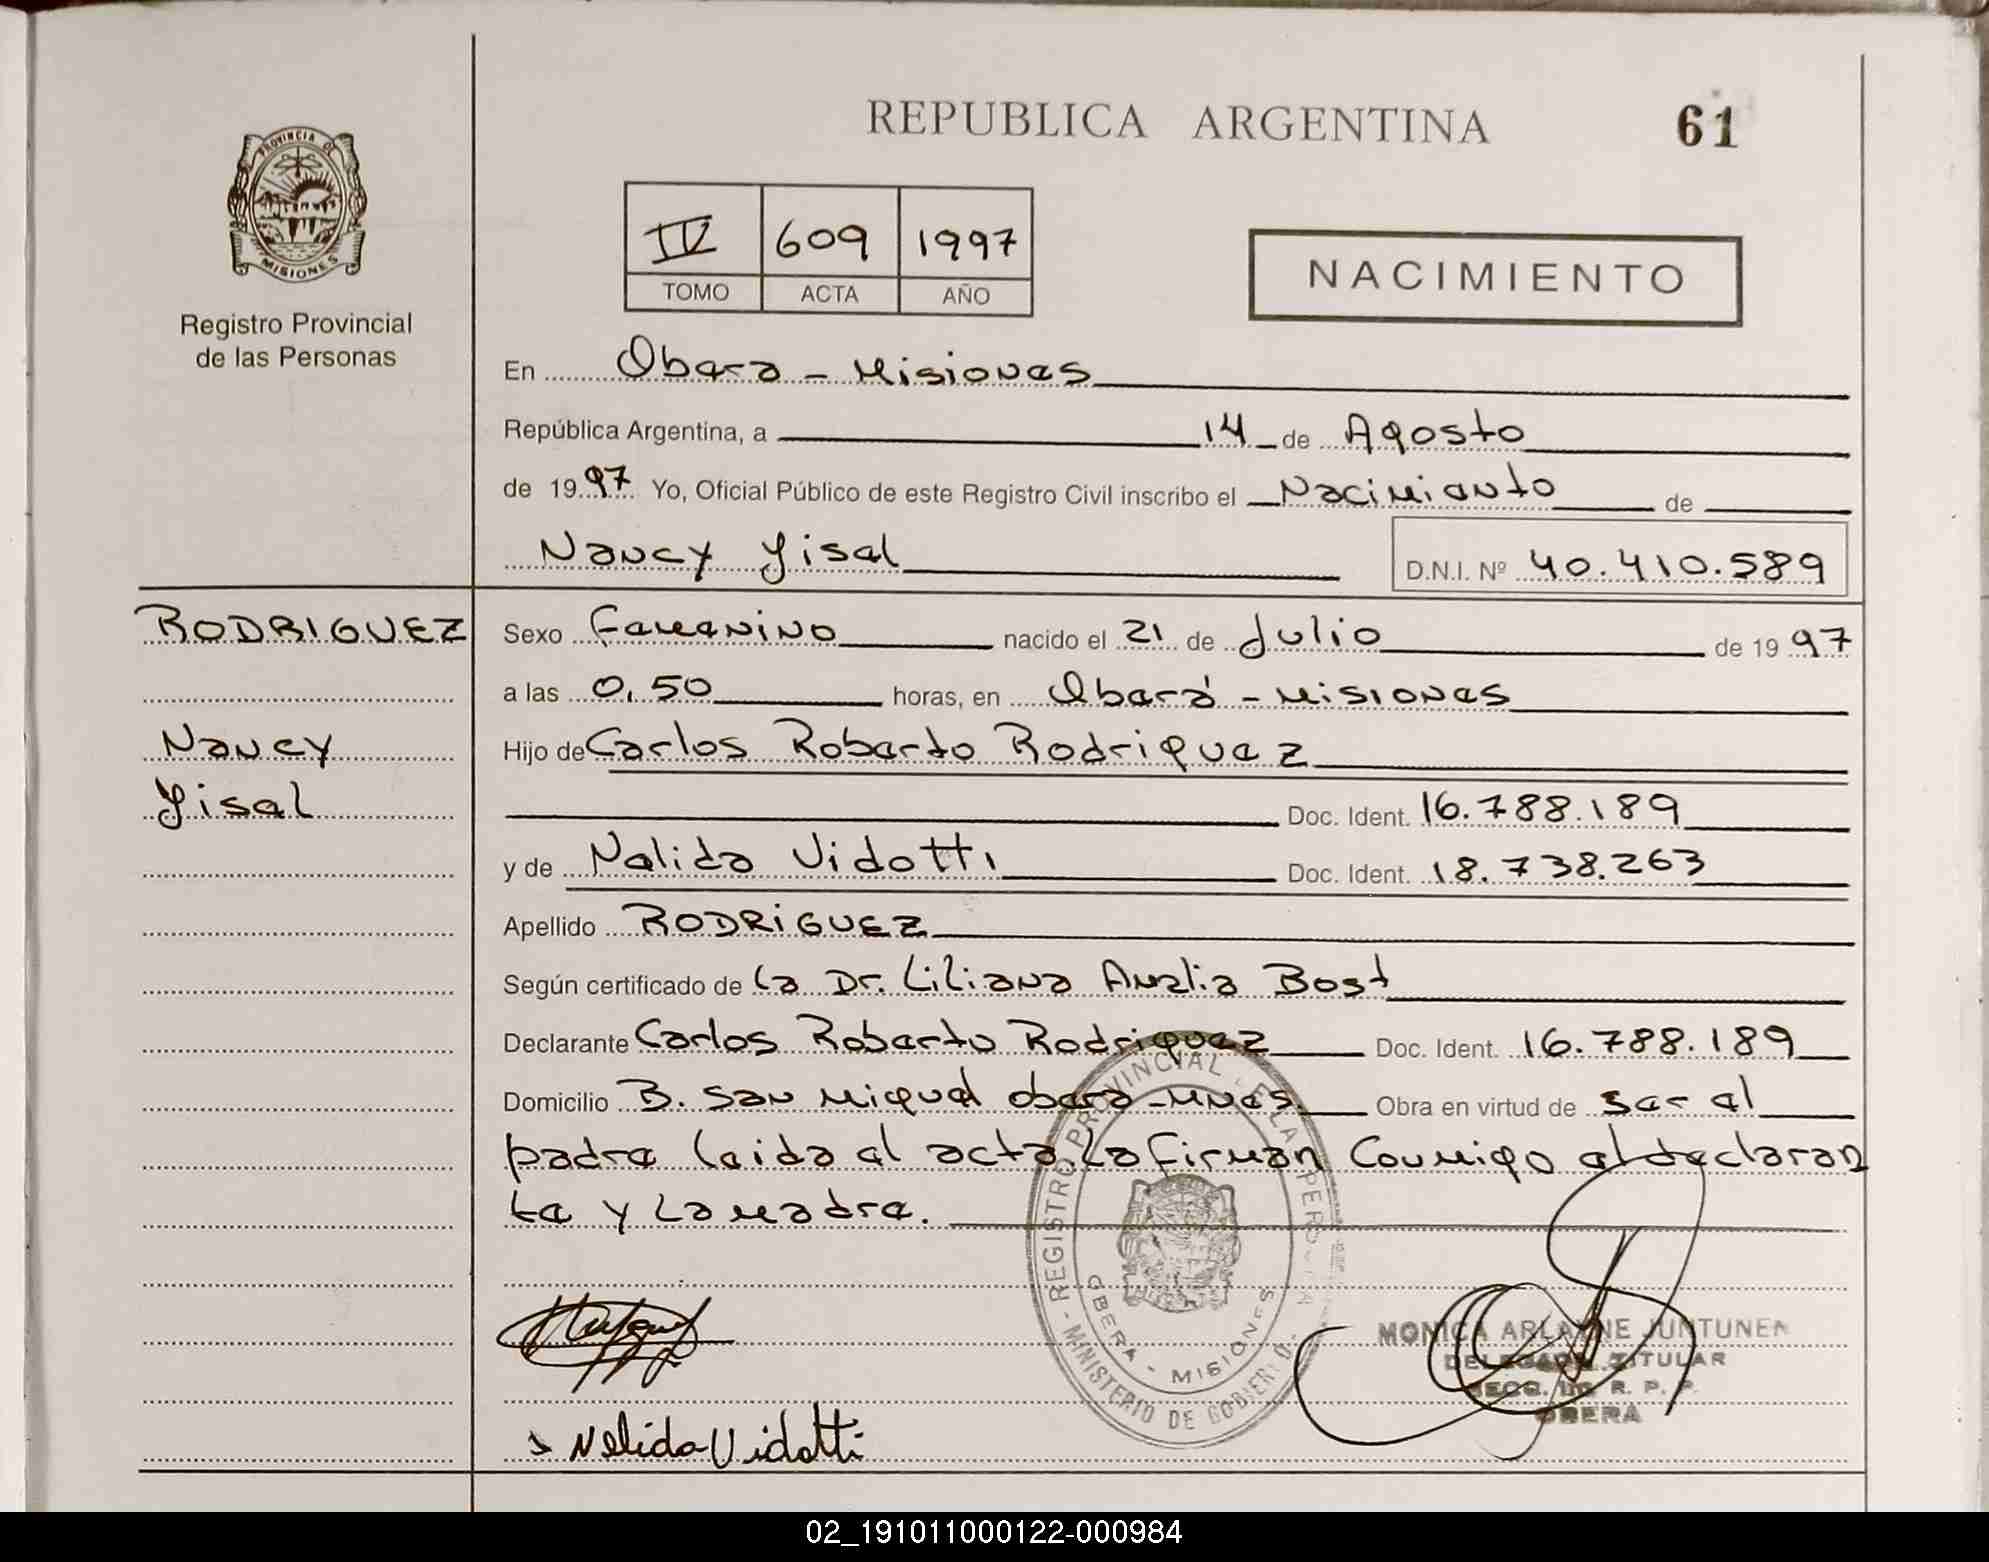 REPUBLICA ARGENTINA
61
PROVINCIA DE
MISIONES
Registro Provincial
de las Personas
IV 609 1997
TOMO ACTA AÑO
NACIMIENTO
En Obera - Misiones
República Argentina, a 14 de Agosto
de 1997 Yo, Oficial Público de este Registro Civil inscribo el Nacimiento de
Nancy Yisel
D.N.I. Nº 40.410.589
RODRIGUEZ
Nancy
Yisel
Sexo Femenino nacido el 21 de Julio de 1997
a las 0,50 horas, en Oberá - Misiones
Hijo de Carlos Roberto Rodriguez
Doc. Ident. 16.788.189
y de Nelida Vidotti Doc. Ident. 18.738.263
Apellido RODRiGUEZ
Según certificado de la Dr. Liliana Analia Bost
Declarante Carlos Roberto Rodriguez Doc. Ident. 16.788.189
Domicilio B. San Miguel Obera - Mnes. Obra en virtud de ser el
padre leida el acta La Firman Conmigo el declaran
te y La madre.
REGISTRO PROVINCIAL PERSO
OBERA - MISIONES
MINISTERIO DE GOBIERNO
MONICA ARLAYNE JUNTUNEN
DELEGADA TITULAR
SECC. R. P. P.
OBERA
Nelida Vidotti
02_191011000122-000984